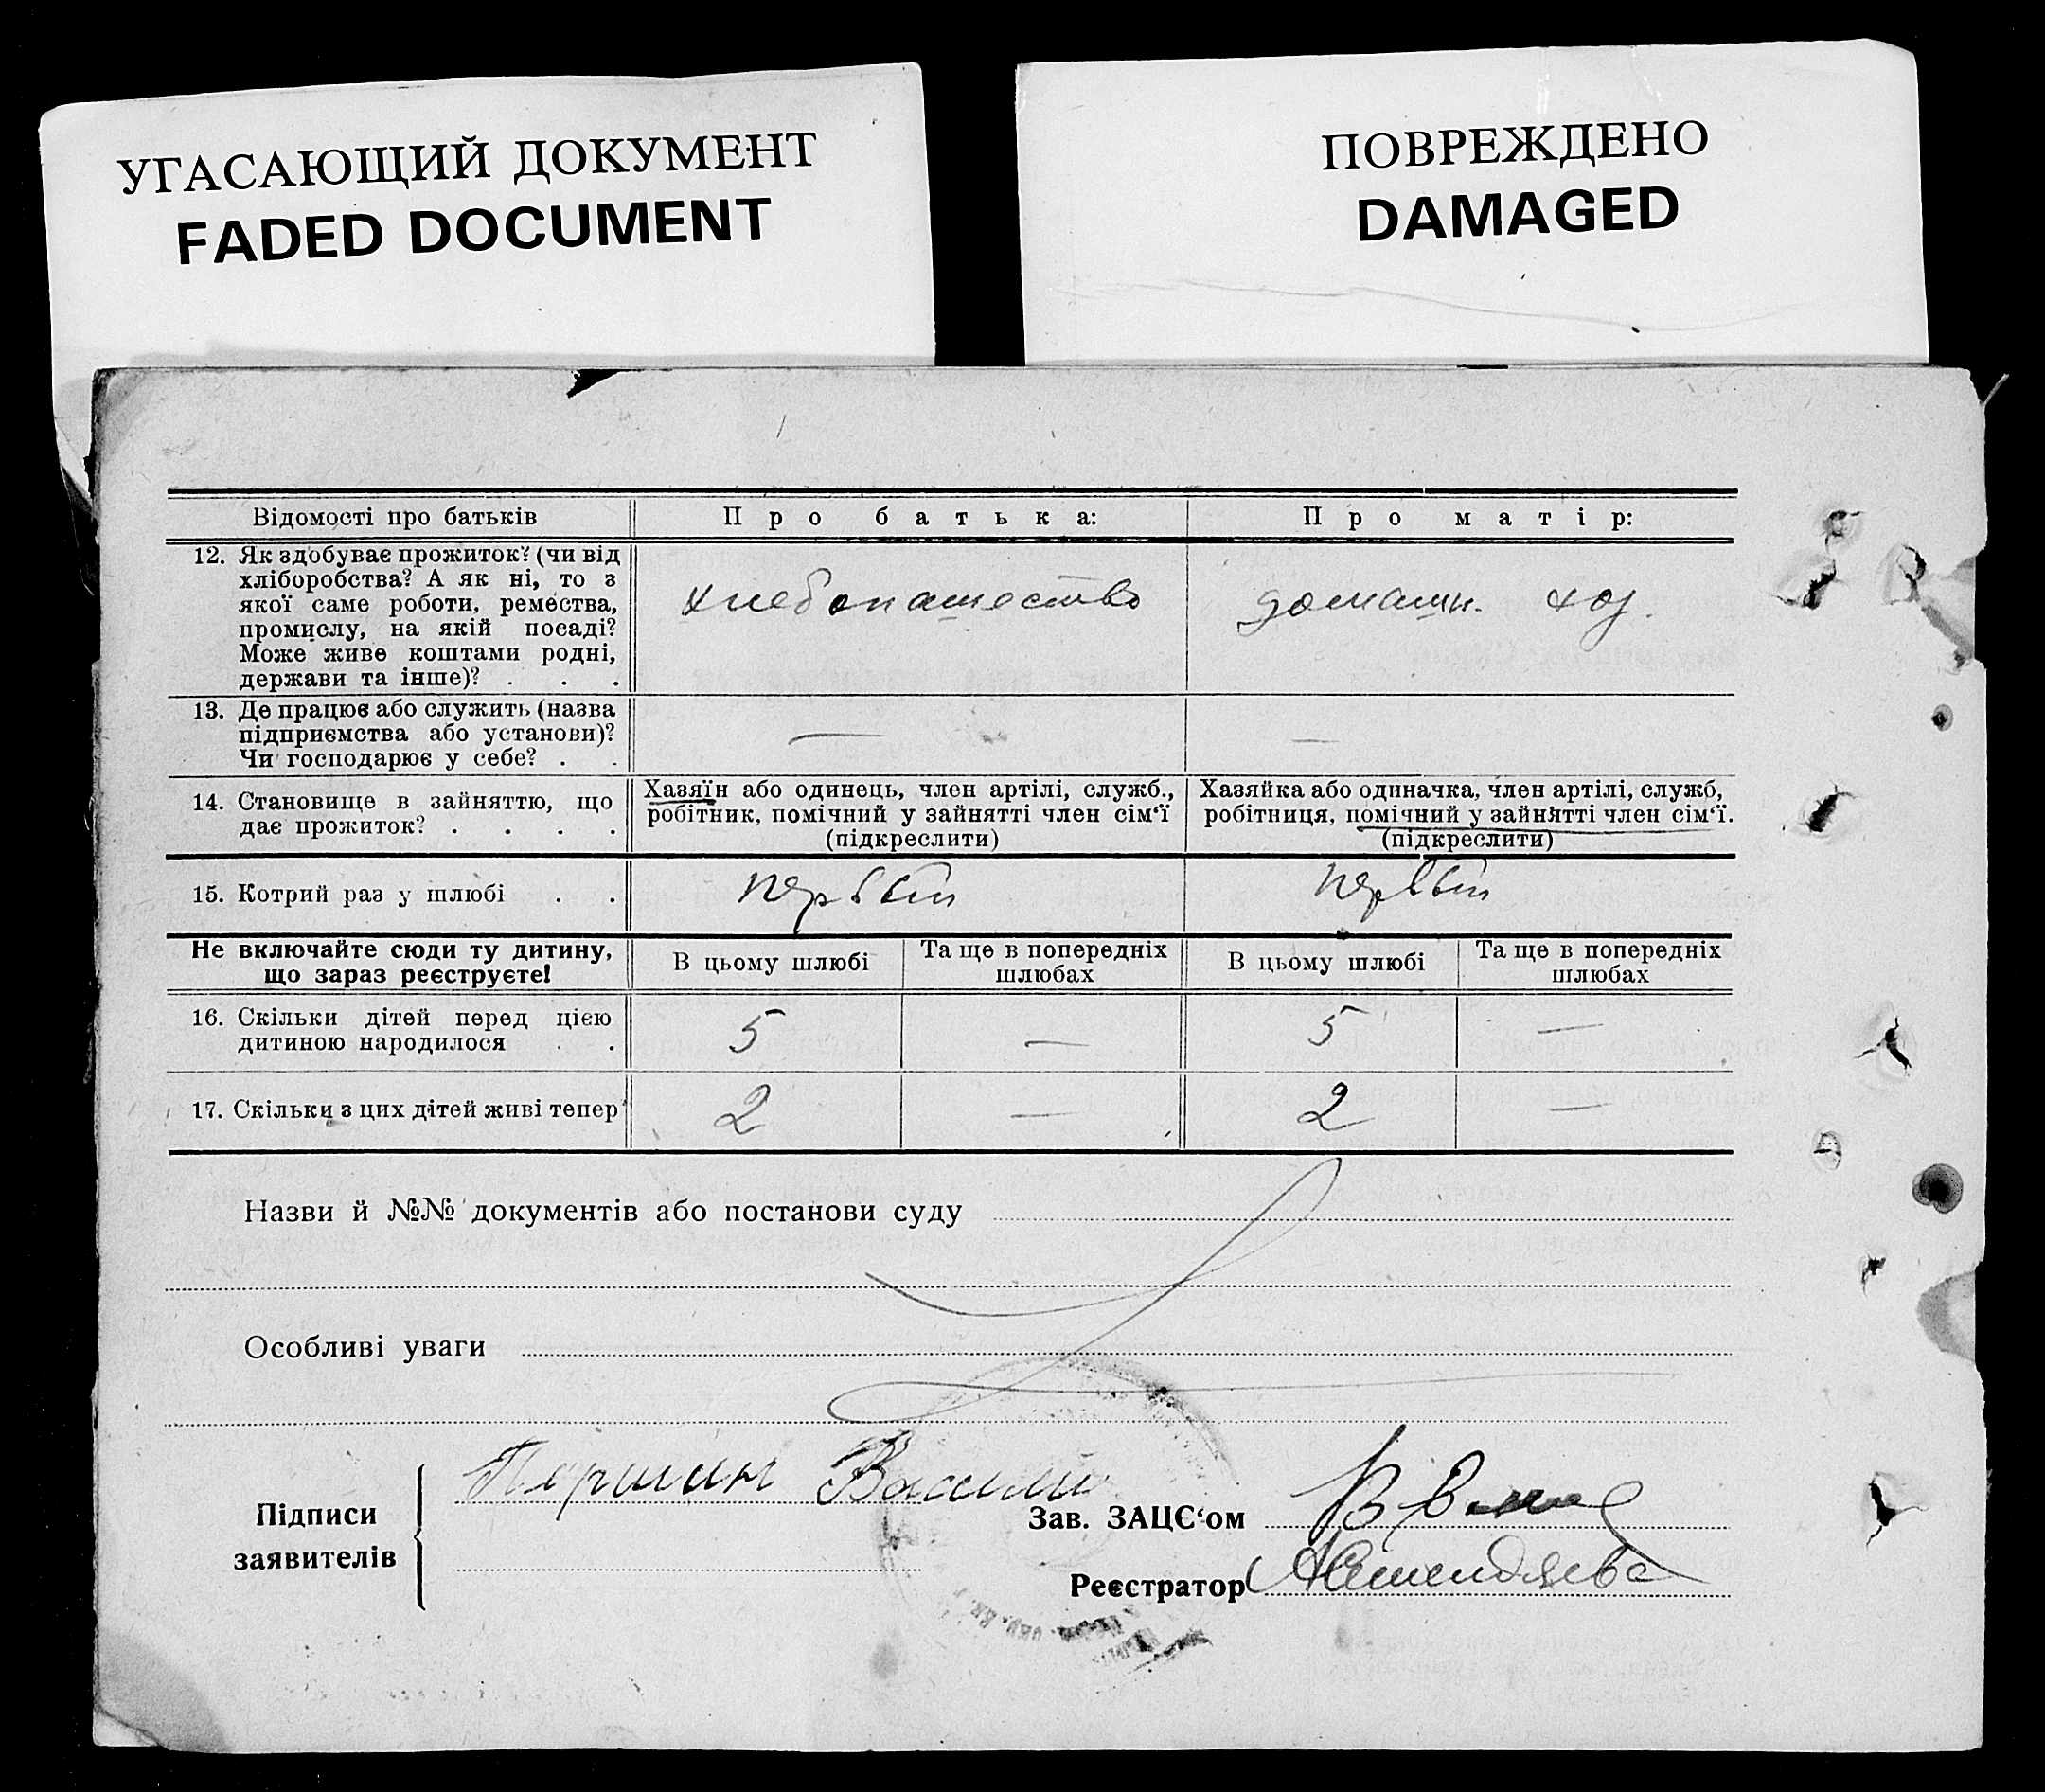 УГАСАЮЩИЙ ДОКУМЕНТ
FADED DOCUMENT
ПОВРЕЖДЕНО
DAMAGED
Відомості про батьків
Про батька:
Про матір:
12. Як здобуває прожиток? (чи від
хліборобства? А як ні, то з
якої саме роботи, ремества,
промислу, на якій посаді?
Може живе коштами родні,
держави та інше)? . . .
хлебопашество
домашн. хоз.
13. Де працює або служить (назва
підприємства або установи)?
Чи господарює у себе? . .
—
—
14. Становище в зайняттю, що
дає прожиток? . . . .
Хазяїн або одинець, член артілі, служб.,
робітник, помічний у зайнятті член сім‘ї
(підкреслити)
Хазяйка або одиначка, член артілі, служб,
робітниця, помічний у зайнятті член сім‘ї.
(підкреслити)
15. Котрий раз у шлюбі . .
первый
первый
Не включайте сюди ту дитину,
що зараз реєструєте!
В цьому шлюбі
Та ще в попередніх
шлюбах
В цьому шлюбі
Та ще в попередніх
шлюбах
16. Скільки дітей перед цією
дитиною народилося . .
5
—
5
—
17. Скільки з цих дітей живі тепер
2
—
2
—
Назви й №№ документів або постанови суду
Особливі уваги
Підписи
заявителів
Першин Василий
Зав. ЗАЦС‘ом
Реєстратор